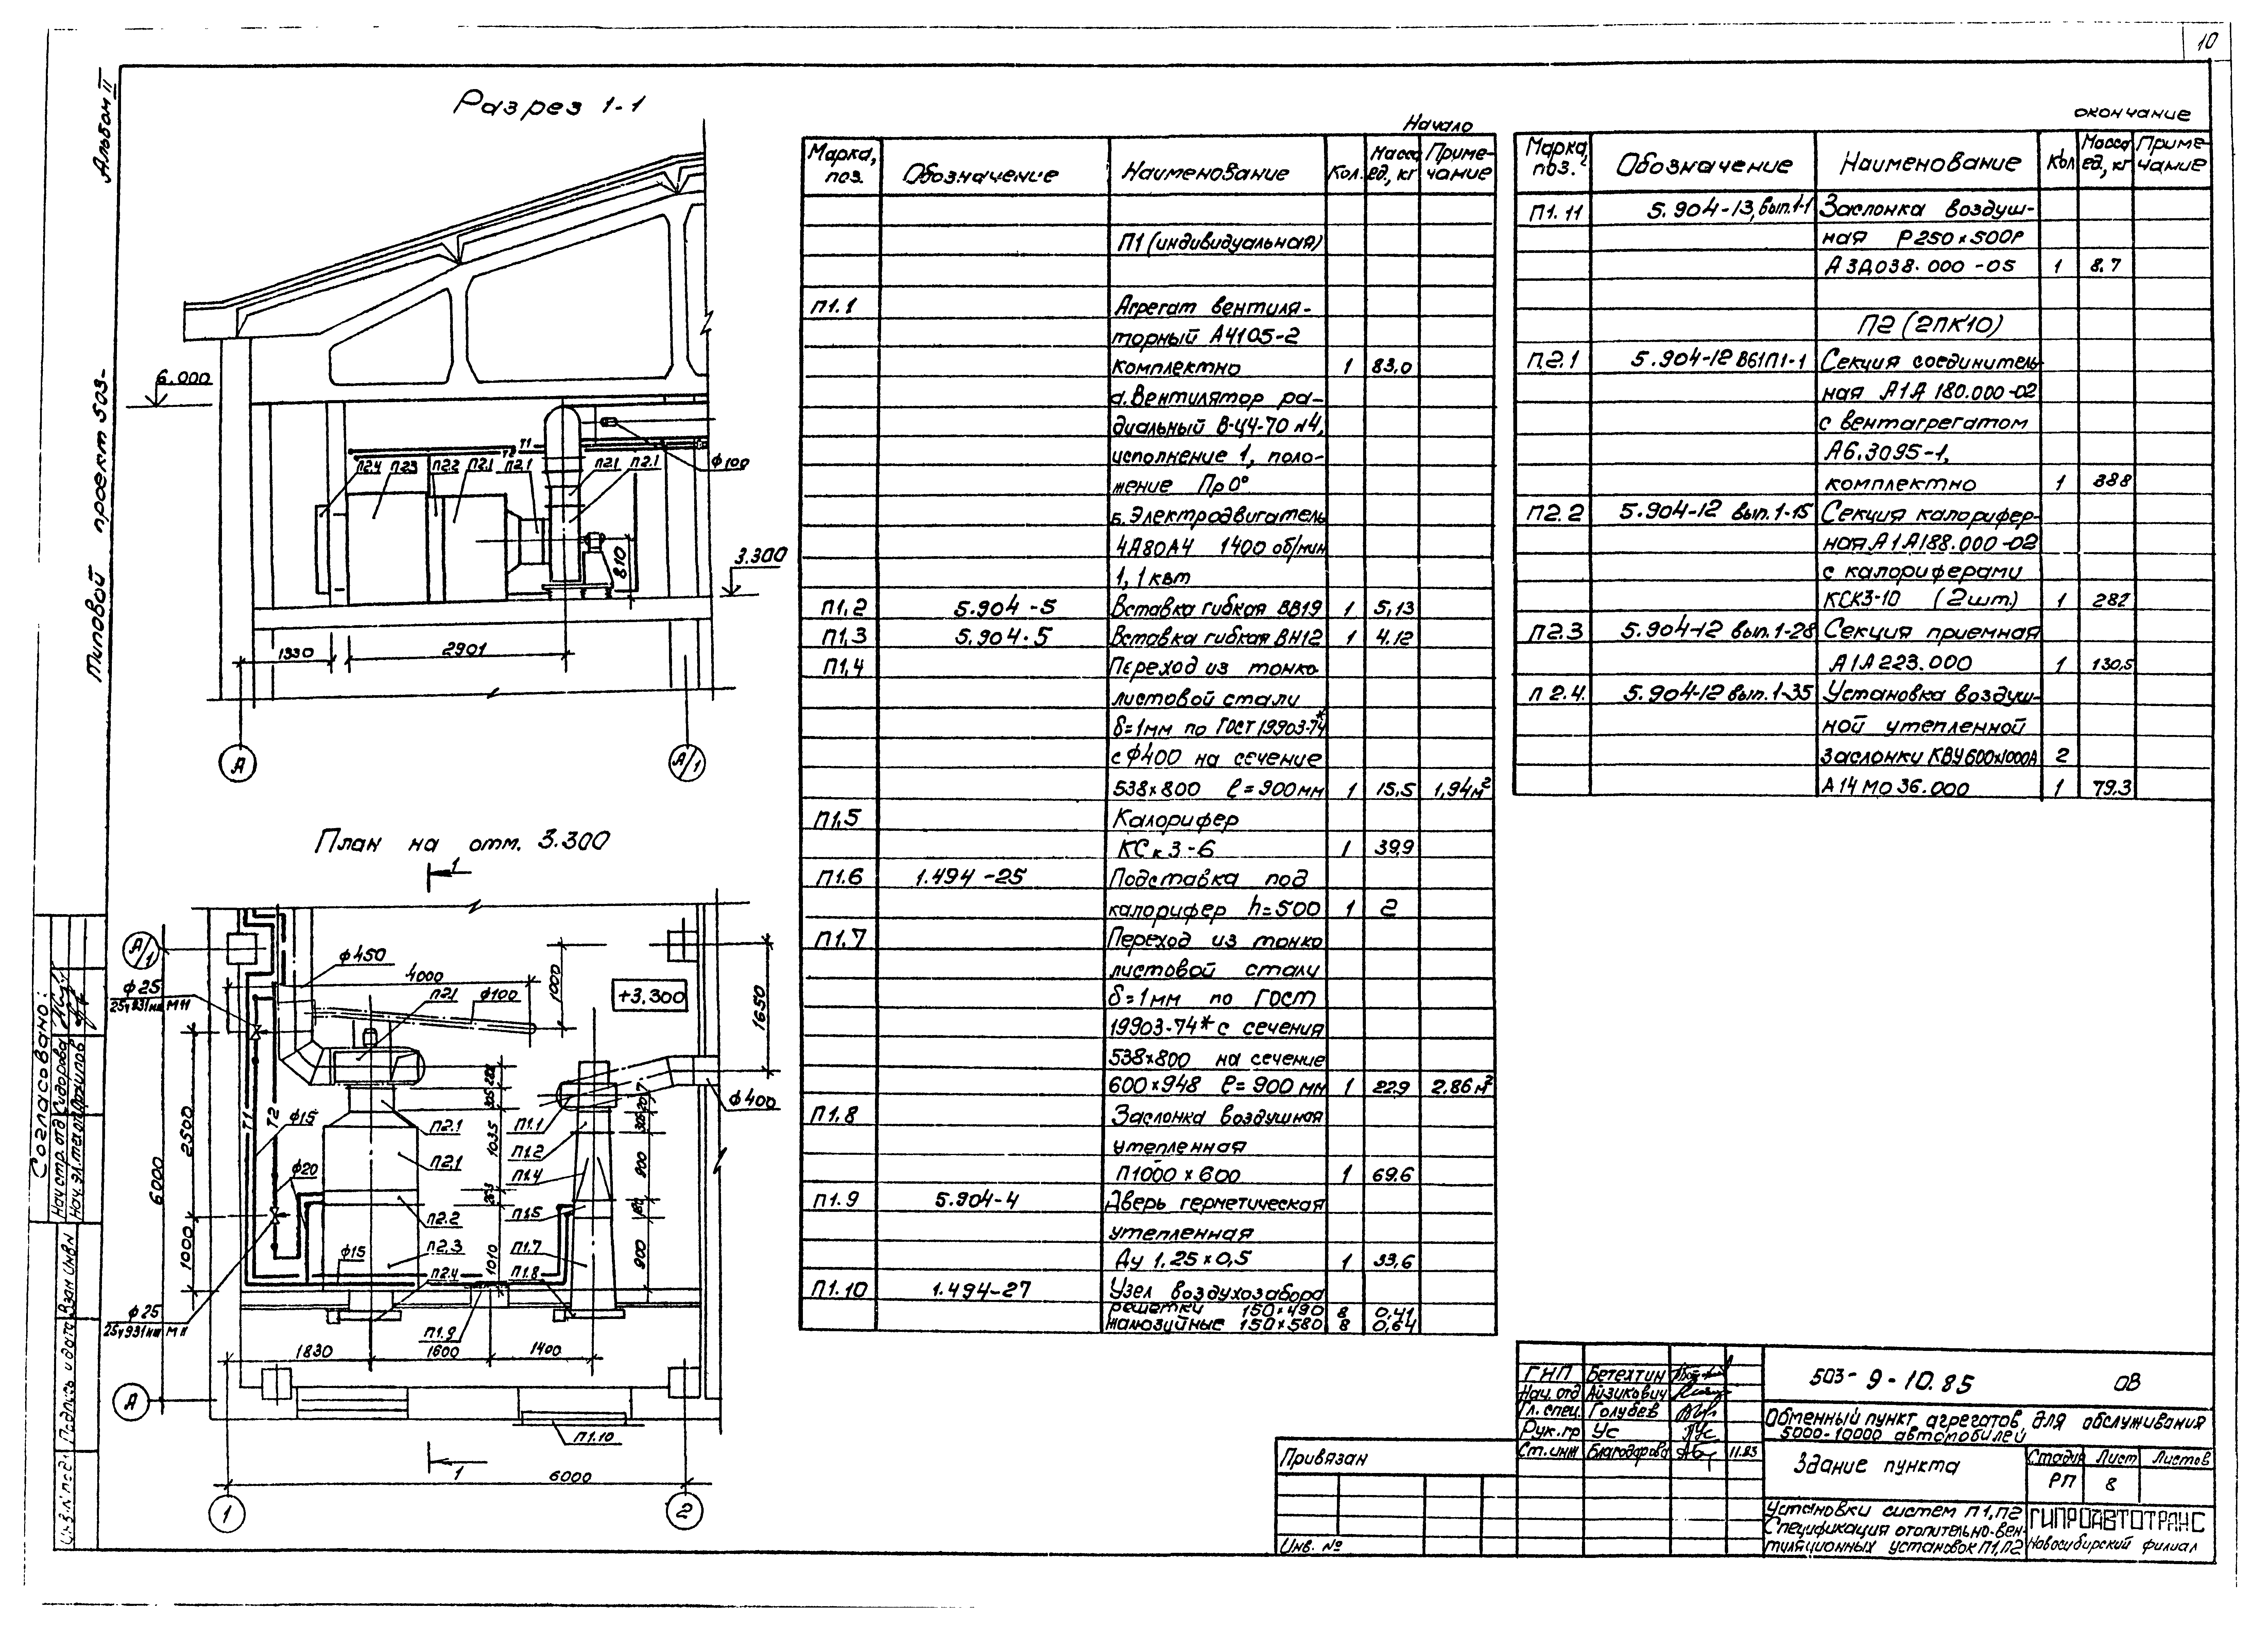 10
Альбом II
Типовой проект 503-
Разрез 1-1
6.000
Т1
Т2
П2.4 П2.3 П2.2 П2.1 П2.1 П2.1 П2.1
ф100
810
3.300
1330
2901
А
А/1
План на отм. 3.300
1
А/1
ф450
4000
П2.1
ф100
1000
+3,300
1650
ф25
2500
1000
6000
Т1
Т2
ф15
ф20
П2.1
П2.1
П2.2
П2.3
П2.4
ф15
1035
263
1010
П1.1
П1.2
П1.4
П1.5
П1.7
П1.8
900
180
900
ф400
ф25
П1.9
1830
1600
1400
А
П1.10
1
6000
1
2
Согласовано:
Нач. стр. отд Сидорова
Взам инв N
Подпись и дата
Инв. N подл
Начало
Марка, поз. Обозначение Наименование Кол. Масса ед, кг Приме-чание
П1 (индивидуальная)
П1.1 Агрегат вентиля-
торный А4105-2
комплектно 1 83,0
а. Вентилятор ра-
диальный В-Ц4-70 N4,
исполнение 1, поло-
жение Пр0°
б. Электродвигатель
4А80А4 1400 об/мин
1,1 квт
П1.2 5.904-5 Вставка гибкая ВВ19 1 5,13
П1.3 5.904.5 Вставка гибкая ВН12 1 4.12
П1.4 Переход из тонко
листовой стали
δ=1мм по ГОСТ 19903-74*
с ф400 на сечение
538×800 ℓ=900мм 1 15,5 1,94м²
П1.5 Калорифер
КСк 3-6 1 39,9
П1.6 1.494-25 Подставка под
калорифер h=500 1 2
П1.7 Переход из тонко
листовой стали
δ=1мм по ГОСТ
19903-74* с сечения
538×800 на сечение
600×948 ℓ=900 мм 1 22,9 2,86м²
П1.8 Заслонка воздушная
утепленная
П1000×600 1 69.6
П1.9 5.904-4 Дверь герметическая
утепленная
Ду 1.25×0,5 1 33,6
П1.10 1.494-27 Узел воздухозабора
решетки 150×490 8 0,41
жалюзийные 150×580 8 0,64
окончание
Марка, поз. Обозначение Наименование Кол Масса ед., кг Приме-чание
П1.11 5.904-13, вып.1-1 Заслонка воздуш-
ная Р250×500Р
АЗД038.000-05 1 8.7
П2 (2ПК10)
П.2.1 5.904-12 В61П1-1 Секция соединитель-
ная А1А 180.000-02
с вентагрегатом
А6.3095-1,
комплектно 1 388
П2.2 5.904-12 вып.1-15 Секция калорифер-
ная А1А188.000-02
с калориферами
КСК3-10 (2шт.) 1 282
П2.3 5.904-12 вып.1-28 Секция приемная
А1А223.000 1 130,5
П2.4. 5.904-12 вып.1-35 Установка воздуш-
ной утепленной
заслонки КВУ600×1000А 2
А14М036.000 1 79.3
ГНП Бетехтин
Нач. отд Айзикович
Гл. спец. Голубев
Рук. гр Ус
Ст. инж Благодарова 11.83
503-9-10.85 ОВ
Обменный пункт агрегатов для обслуживания
5000-10000 автомобилей
Здание пункта
Стадия Лист Листов
РП 8
Установки систем П1, П2
Спецификация отопительно-вен-
тиляционных установок П1, П2
ГИПРОАВТОТРАНС
Новосибирский филиал
Привязан
Инв. №